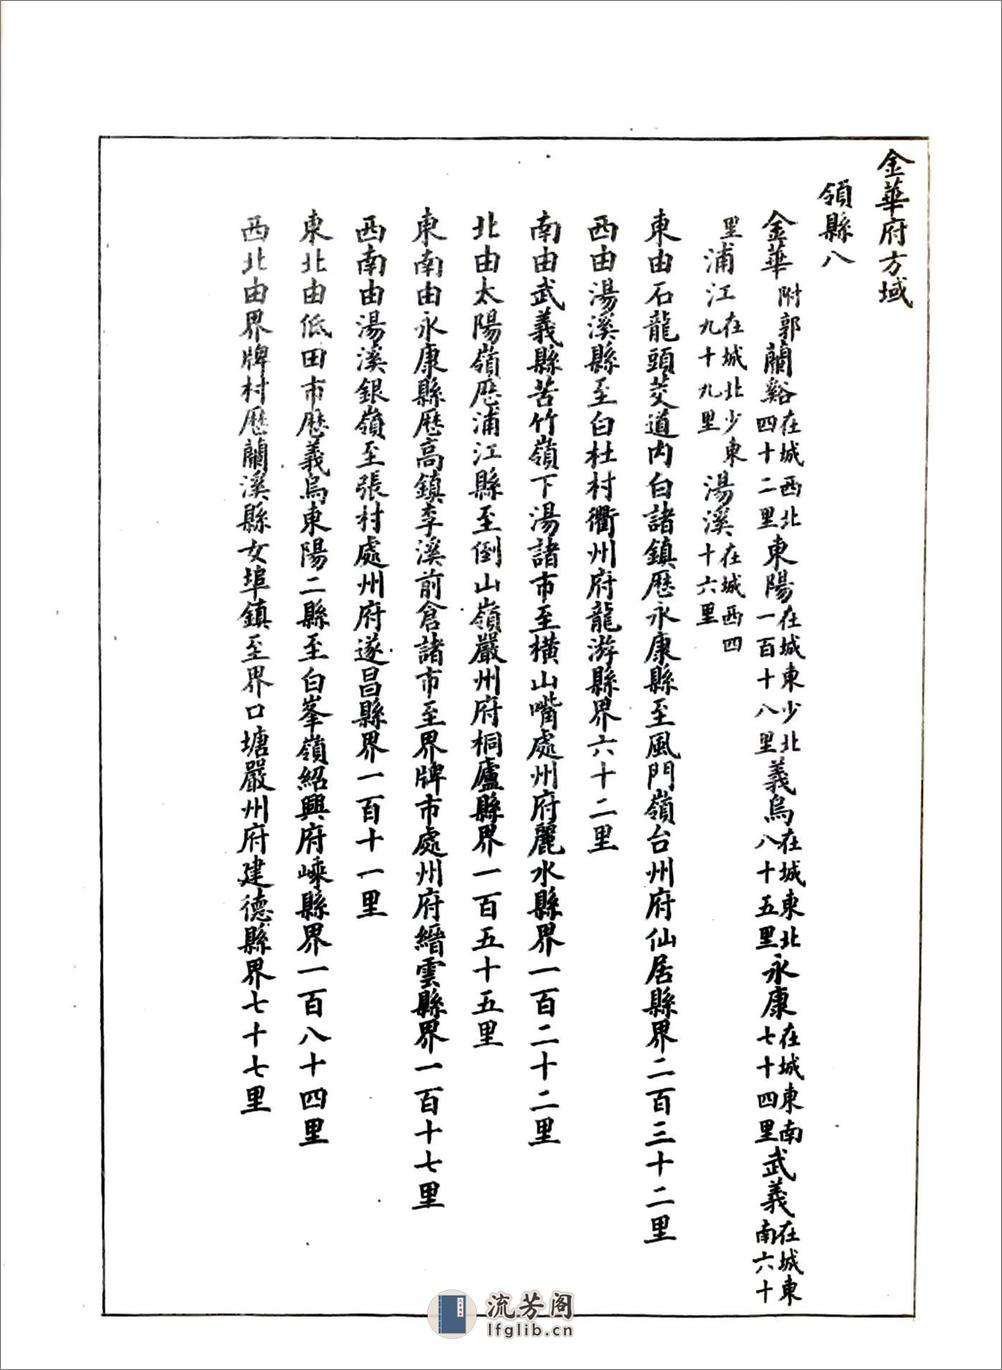 金華府方域
領縣八
金華附郭蘭谿在城西北四十二里東陽在城東少北一百十八里義烏在城東北八十五里永康在城東南七十四里武義在城東南六十
里浦江在城北少東九十九里湯溪在城西四十六里
東由石龍頭茭道內白諸鎮歷永康縣至風門嶺台州府仙居縣界二百三十二里
西由湯溪縣至白杜村衢州府龍游縣界六十二里
南由武義縣苦竹嶺下湯諸市至橫山嘴處州府麗水縣界一百二十二里
北由太陽嶺歷浦江縣至倒山嶺嚴州府桐廬縣界一百五十五里
東南由永康縣歷高鎮李溪前倉諸市至界牌市處州府縉雲縣界一百十七里
西南由湯溪銀嶺至張村處州府遂昌縣界一百十一里
東北由低田市歷義烏東陽二縣至白峯嶺紹興府嵊縣界一百八十四里
西北由界牌村歷蘭溪縣女埠鎮至界口塘嚴州府建德縣界七十七里
流芳阁
lfglib.cn